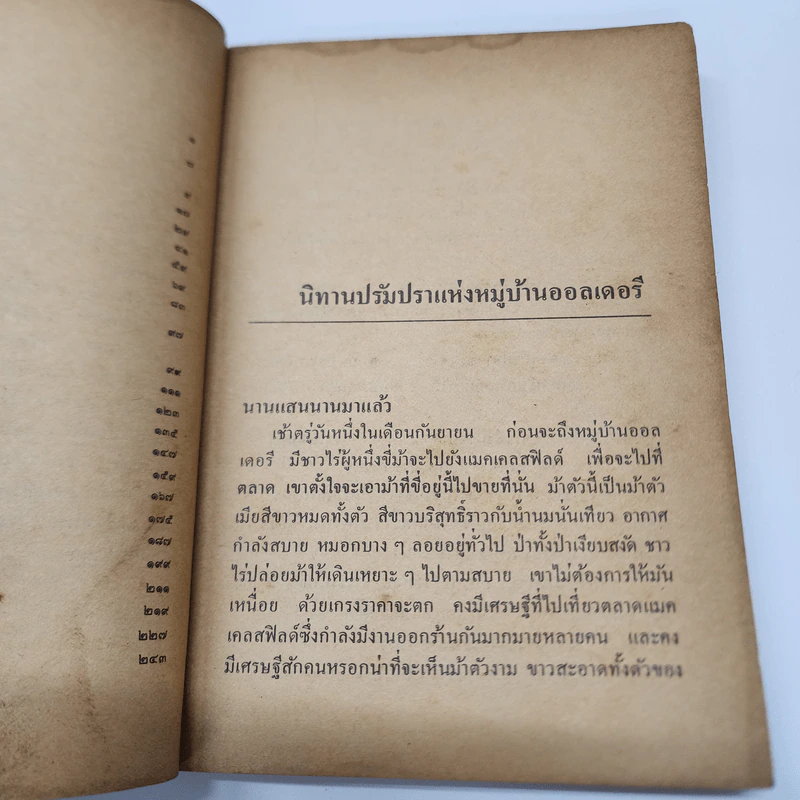 ๙๘
๙๙
๑๑๑
๑๒๓
๑๓๕
๑๔๗
๑๕๙
๑๖๗
๑๗๕
๑๘๗
๑๙๙
๒๑๑
๒๑๙
๒๒๗
๒๔๓
นิทานปรัมปราแห่งหมู่บ้านออลเดอรี
นานแสนนานมาแล้ว
เช้าตรู่วันหนึ่งในเดือนกันยายน ก่อนจะถึงหมู่บ้านออล
เดอรี มีชาวไร่ผู้หนึ่งขี่ม้าจะไปยังแมคเคลสฟิลด์ เพื่อจะไปที่
ตลาด เขาตั้งใจจะเอาม้าที่ขี่อยู่นี้ไปขายที่นั่น ม้าตัวนี้เป็นม้าตัว
เมียสีขาวหมดทั้งตัว สีขาวบริสุทธิ์ราวกับน้ำนมนั่นเทียว อากาศ
กำลังสบาย หมอกบาง ๆ ลอยอยู่ทั่วไป ป่าทั้งป่าเงียบสงัด ชาว
ไร่ปล่อยม้าให้เดินเหยาะ ๆ ไปตามสบาย เขาไม่ต้องการให้มัน
เหนื่อย ด้วยเกรงราคาจะตก คงมีเศรษฐีที่ไปเที่ยวตลาดแมค
เคลสฟิลด์ซึ่งกำลังมีงานออกร้านกันมากมายหลายคน และคง
มีเศรษฐีสักคนหรอกน่าที่จะเห็นม้าตัวงาม ขาวสะอาดทั้งตัวของ